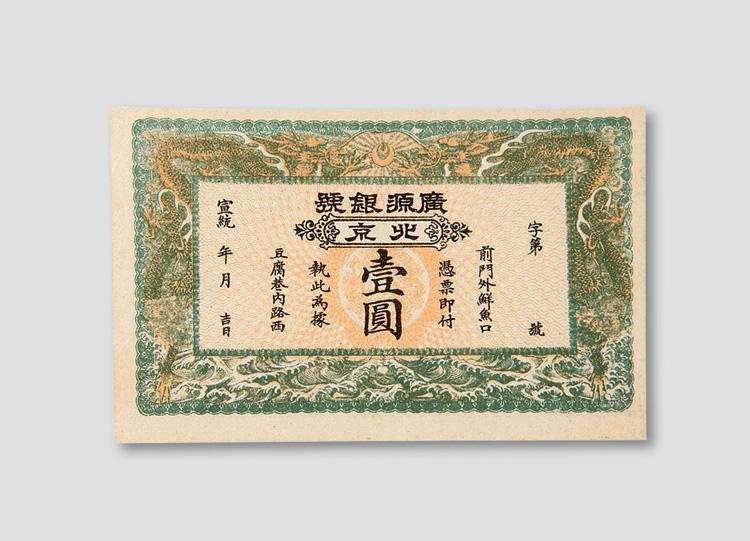 廣源銀號
北京
字第
號
前門外鮮魚口
憑票即付
壹圓
執此為據
豆腐巷內路西
宣統
年月
吉日